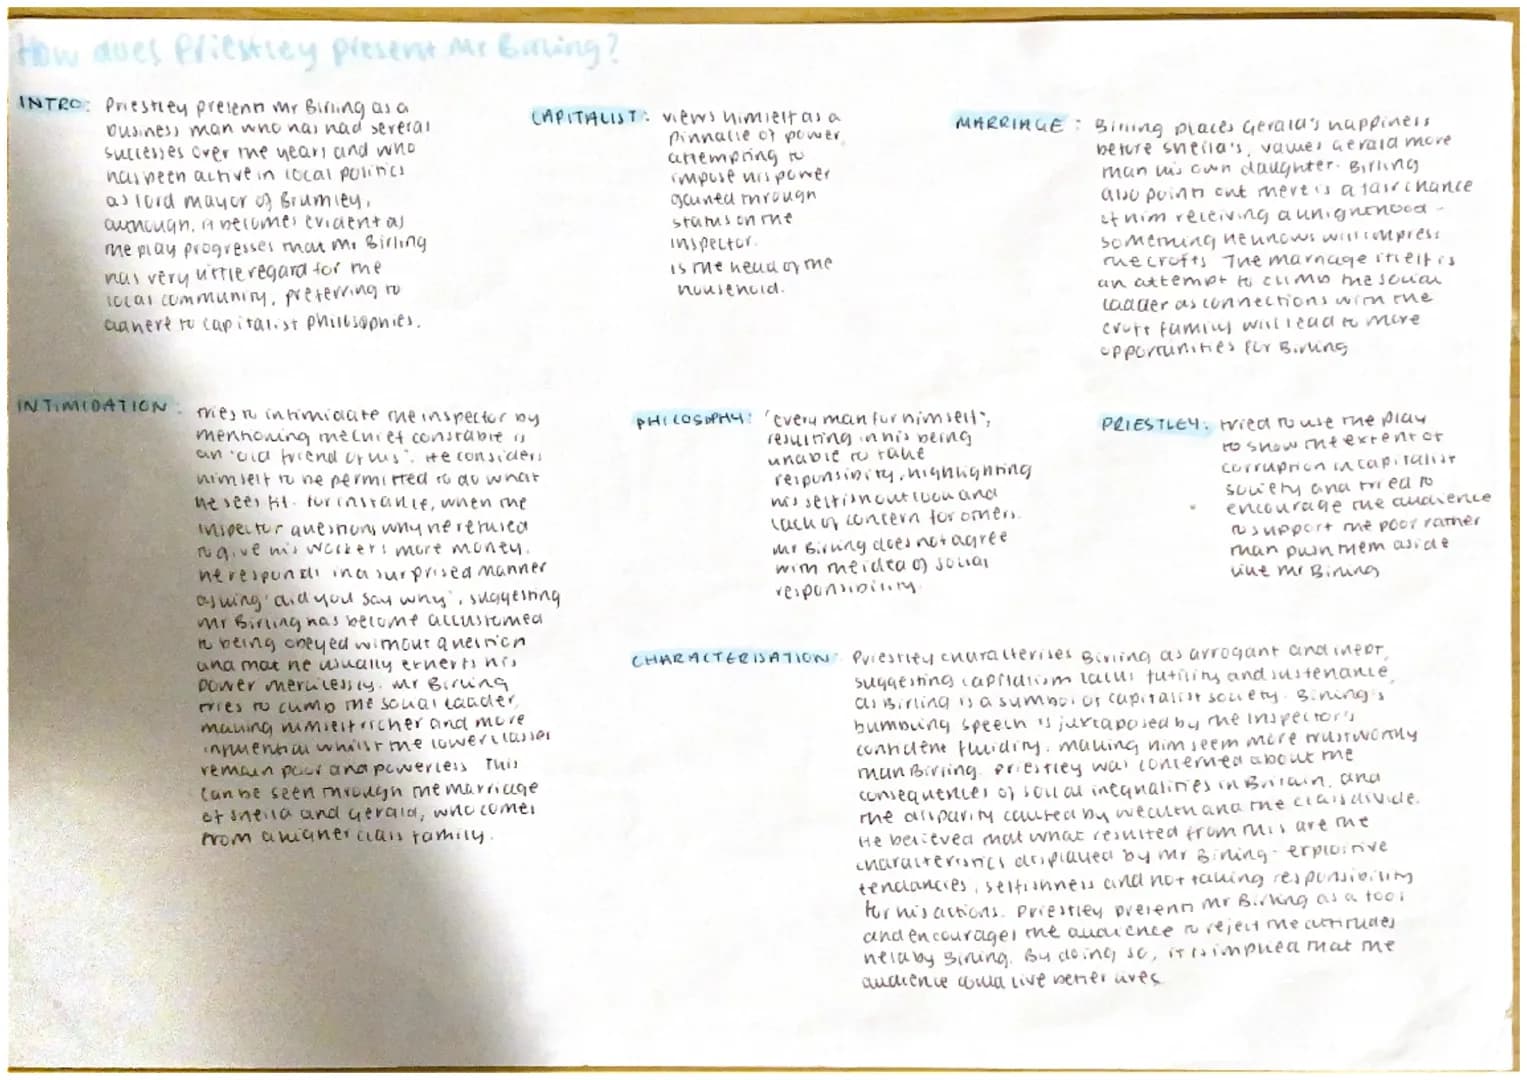 How does Priestley present Mr Birling?
INTRO: Priestley presents Mr Birling as a
business man who has had several
successes over the years and who
has been active in local politics
as lord mayor of Brumley,
although, it becomes evident as
the play progresses that Mr Birling
has very little regard for the
local community, preferring to
adhere to capitalist philosophies.
CAPITALIST: views himself as a
pinnacle of power,
attempting to
impose his power
gained through
status on the
inspector.
is the head of the
household.
MARRIAGE: Birling places Gerald's happiness
before sheila's, values Gerald more
than his own daughter. Birling
also points out there is a fair chance
of him receiving a knighthood -
something he knows will impress
the crofts. The marriage itself is
an attempt to climb the social
ladder as connections with the
croft family will lead to more
opportunities for Birling
INTIMIDATION: tries to intimidate the inspector by
mentioning the chief constable is
an 'old friend of his'. He considers
himself to be permitted to do what
he sees fit. for instance, when the
inspector questions why he refused
to give his workers more money,
he responds in a surprised manner
asking 'did you say why', suggesting
Mr Birling has become accustomed
to being obeyed without question
and that he usually exherts his
power mercilessly. Mr Birling
tries to climb the social ladder,
making himself richer and more
influential whilst the lower classes
remain poor and powerless. This
can be seen through the marriage
of sheila and Gerald, who comes
from a higher class family.
PHILOSOPHY: 'every man for himself',
resulting in his being
unable to take
responsibility, highlighting
his selfish outlook and
lack of concern for others.
Mr Birling does not agree
with the idea of social
responsibility.
PRIESTLEY: tried to use the play
to show the extent of
corruption in capitalist
society and tried to
encourage the audience
to support the poor rather
than push them aside
like Mr Birling
CHARACTERISATION: Priestley characterises Birling as arrogant and inept,
suggesting capitalism lacks futility and sustenance,
as Birling is a symbol of capitalist society. Birling's
bumbling speech is juxtaposed by the inspector's
confident fluidity, making him seem more trustworthy
than Birling. Priestley was concerned about the
consequences of social inequalities in Britain, and
the disparity caused by wealth and the class divide.
He believed that what resulted from this are the
characteristics displayed by Mr Birling - exploitive
tendancies, selfishness and not taking responsibility
for his actions. Priestley presents Mr Birling as a tool
and encourages the audience to reject the attitudes
held by Birling. By doing so, it is implied that the
audience could live better lives.